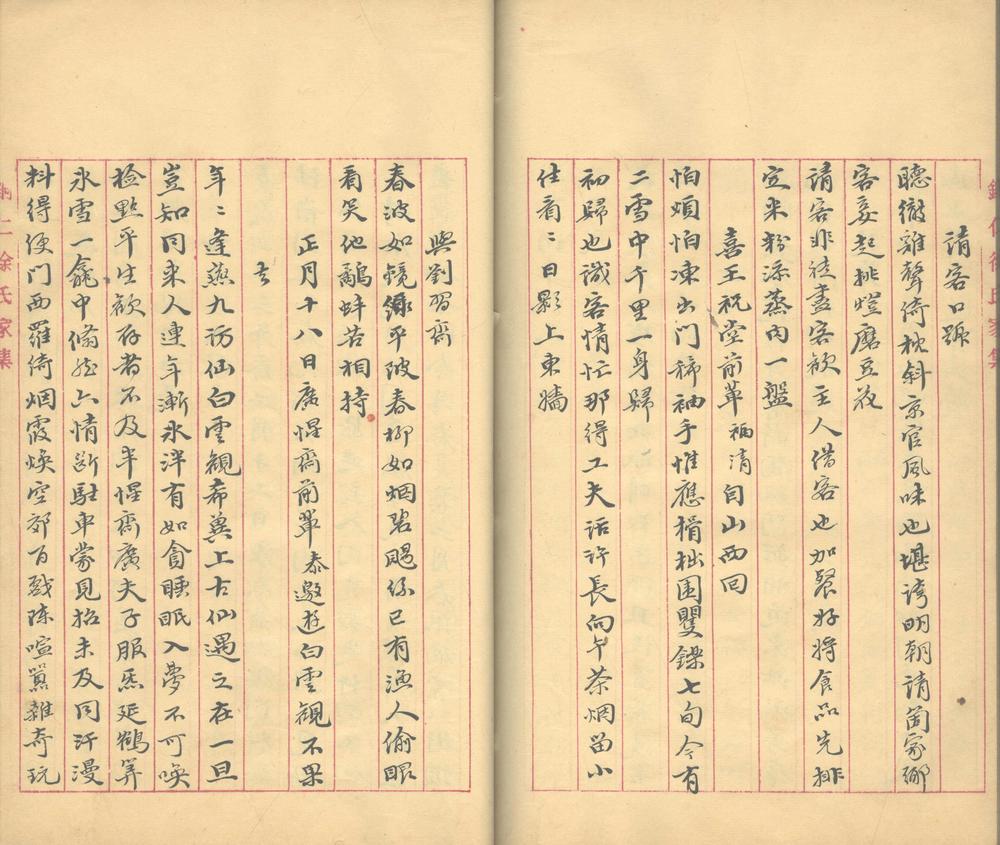 請客口號
聽徹雞聲倚枕斜京官風味也堪誇明朝請箇家鄉
客妾起挑燈磨豆花
請客非徒盡客歡主人借客也加餐好將食品先排
定米粉添蒸肉一盤
喜王祝堂前輩 福清自山西回
怕煩怕凍出門稀袖手惟應榾柮圍矍鑠七旬今有
二雪中千里一身歸
初歸也識客情忙那得工夫話許長向午茶烟留小
住看：日影上東牆
與劉習齋
春波如鏡綠平陂春柳如烟碧颺絲已有漁人偷眼
看笑他鷸蚌苦相持
正月十八日廣惺齋前輩泰邀遊白雲觀不果
去
年：逢燕九訪仙白雲觀希冀上古仙遇之在一旦
豈知同來人連年漸冰泮有如貪睡眠入夢不可喚
檢點平生歡存者不及半惺齋廣夫子服炁延鶴算
氷雪一龕中翛然六情斷駐車蒙見招未及同汗漫
料得便門西羅綺烟霞煥空郊百戲陳喧囂雜奇玩